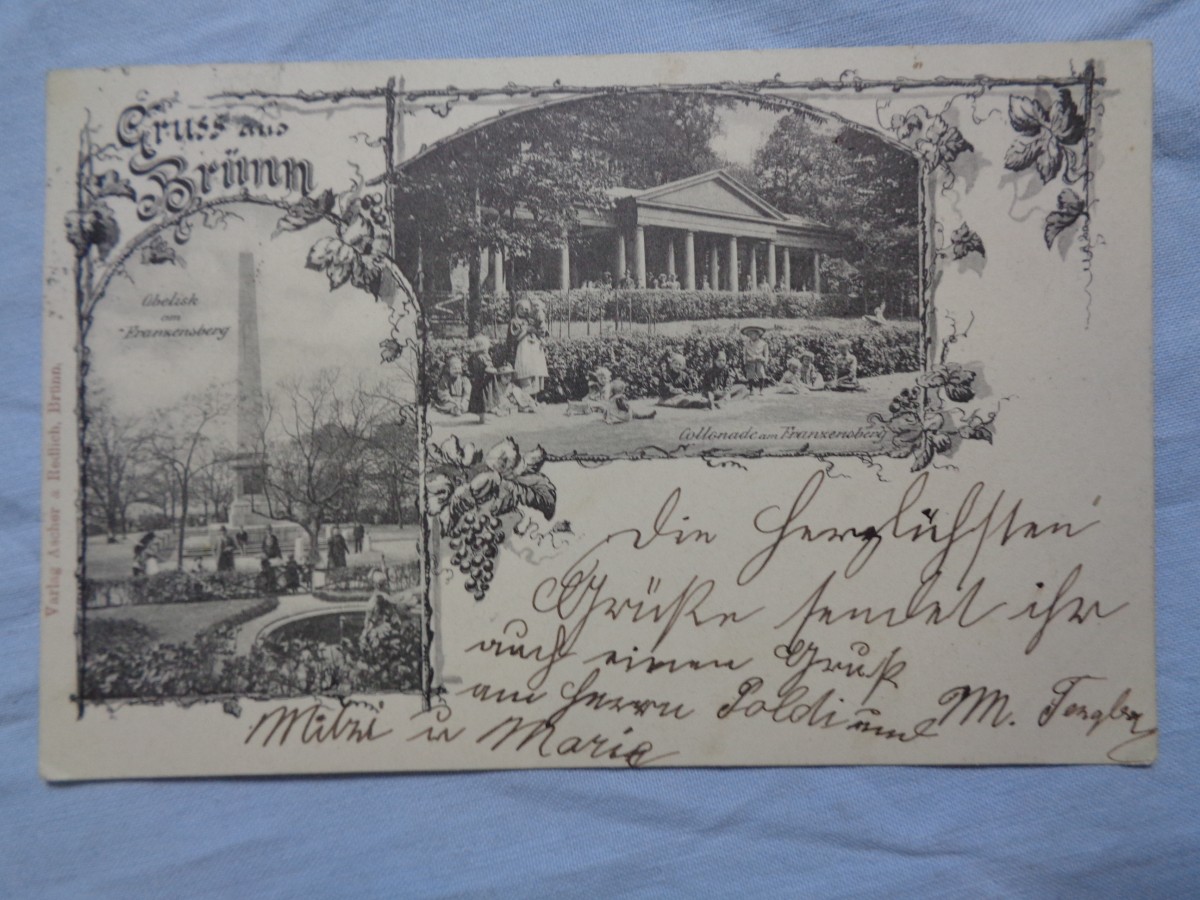 Gruss aus
Brünn
Obelisk
am
Franzensberg
Collonade am Franzensberg
Verlag Ascher & Redlich, Brünn.
Die herzlichsten
Grüße sendet ihr
auch einen Gruß
am herrn Poldi und M.
Mitzi u Marie